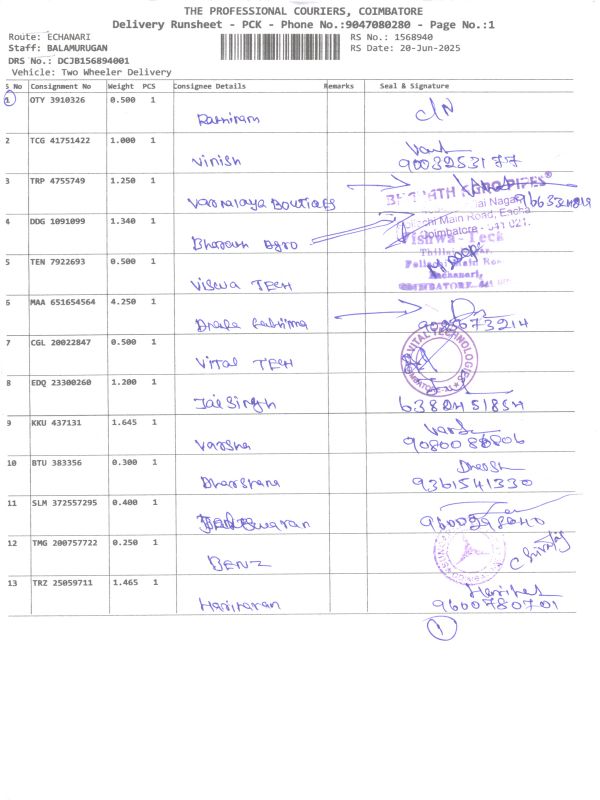 THE PROFESSIONAL COURIERS, COIMBATORE
Delivery Runsheet - PCK - Phone No.:9047080280 - Page No.:1
Route: ECHANARI RS No.: 1568940
Staff: BALAMURUGAN RS Date: 20-Jun-2025
DRS No.: DCJB156894001
Vehicle: Two Wheeler Delivery
S No Consignment No Weight PCS Consignee Details Remarks Seal & Signature
1 OTY 3910326 0.500 1
2 TCG 41751422 1.000 1 Vinish
9003253177
3 TRP 4755749 1.250 1
4 DDG 1091099 1.340 1 Bharath Agro
Main Road, Eacha
Coimbatore - 641 021.
5 TEN 7922693 0.500 1 Viswa TECH
Vishwa-Tech
Eachanari,
COIMBATORE
6 MAA 651654564 4.250 1
7 CGL 20022847 0.500 1 Vital TECH
VITAL TECHNOLOGIES
8 EDQ 23300260 1.200 1 Jai Singh
9 KKU 437131 1.645 1 Varsha
10 BTU 383356 0.300 1 Dharshana
Dharsh
9361541330
11 SLM 372557295 0.400 1
12 TMG 200757722 0.250 1 BENZ
13 TRZ 25059711 1.465 1 Hariharan
9600780701
1